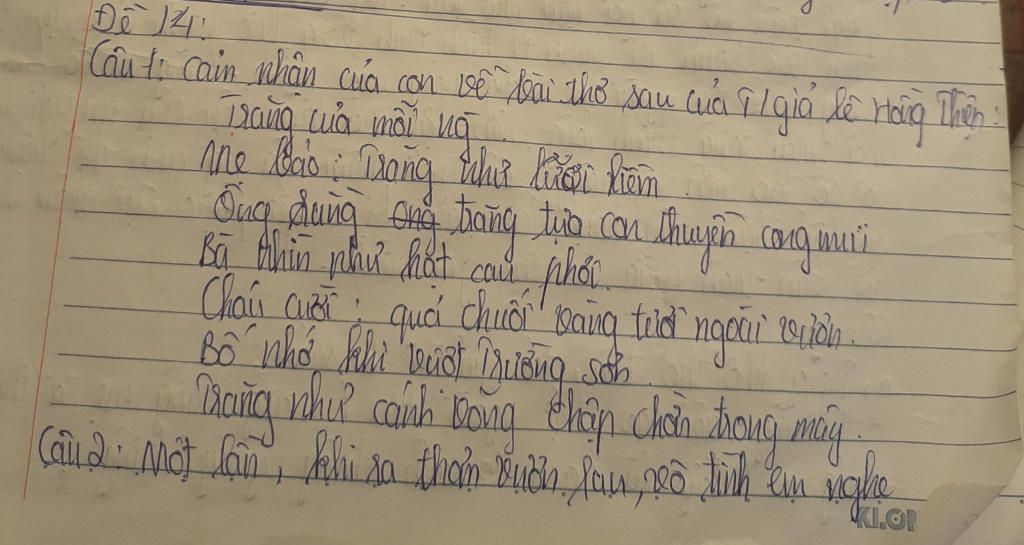 Đề 14:
Câu 1: Cảm nhận của con về bài thơ sau của T/giả Lê Hồng Thiện:
Trăng của mỗi ng
Mẹ bảo: Trăng như lưỡi liềm
Ông rằng ong trăng tựa con thuyền cong mui
Bà nhìn như hạt cau phơi.
Cháu cười: quả chuối vàng tươi ngoài vườn.
Bố nhớ khi vượt Trường Sơn
Trăng như cánh võng chập chờn trong mây.
Câu 2: Một lần, khi ra thăm vườn rau, vô tình em nghe
KLON